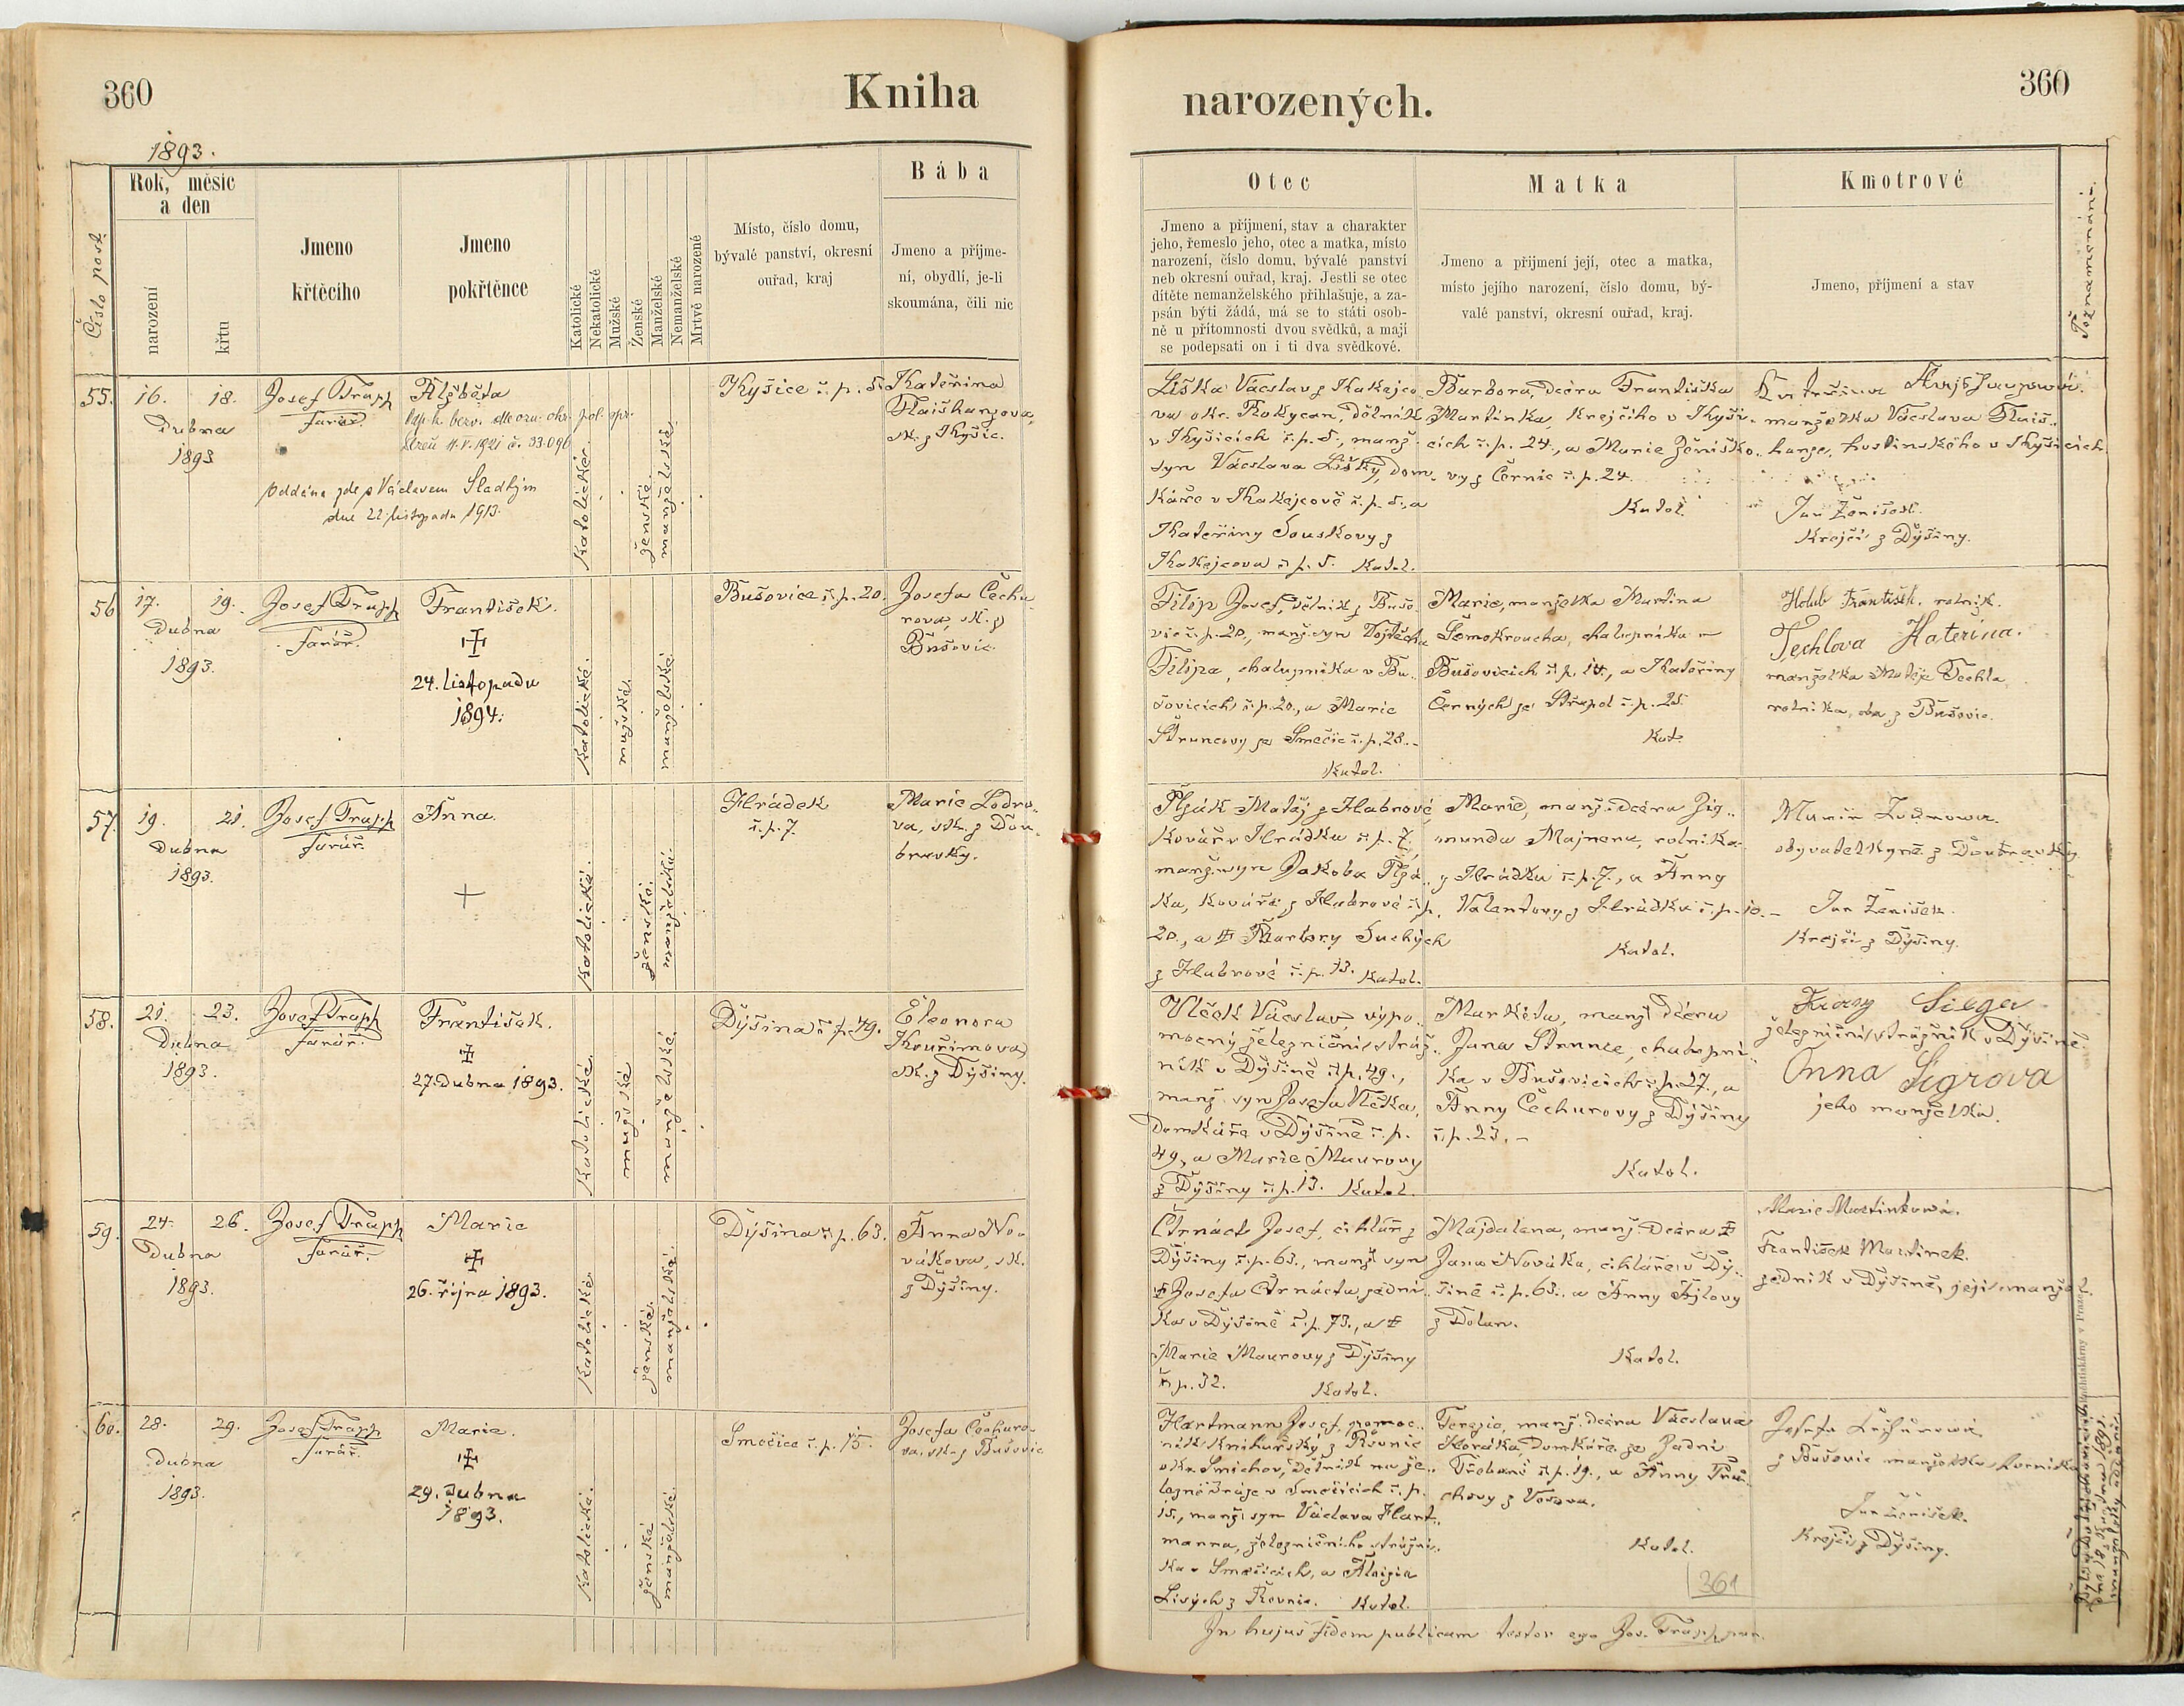 360
Kniha
narozených.
360
1893.
Číslo post.
Rok, měsíc
a den
narození
křtu
Jmeno
křtěcího
Jmeno
pokřtěnce
Katolické
Nekatolické
Mužské
Ženské
Manželské
Nemanželské
Mrtvě narozené
Místo, číslo domu,
bývalé panství, okresní
ouřad, kraj
Bába
Jmeno a příjme-
ní, obydlí, je-li
skoumána, čili nic
Otec
Jmeno a příjmení, stav a charakter
jeho, řemeslo jeho, otec a matka, místo
narození, číslo domu, bývalé panství
neb okresní ouřad, kraj. Jestli se otec
dítěte nemanželského přihlašuje, a za-
psán býti žádá, má se to státi osob-
ně u přítomnosti dvou svědků, a mají
se podepsati on i ti dva svědkové.
Matka
Jmeno a přijmení její, otec a matka,
místo jejího narození, číslo domu, bý-
valé panství, okresní ouřad, kraj.
Kmotrové
Jmeno, příjmení a stav
Poznamenání.
55.
16.
18.
Dubna
1893
Josef Trapp
farář.
Alžběta
11.V.1921 č. 33.096
oddána zde s Václavem Sladkým
dne 22 listopadu 1913.
Katolické
ženské
manželské
Kyšice č. p. 5.
Kateřina
Flaišhanzova,
zk. z Kyšic.
Liška Václav z Kakejco
va okr. Rokycan, dělník
v Kyšicích č. p. 5., manž.
syn Václava Lišky, dom-
káře v Kakejcově č. p. 5., a
Kateřiny Souskovy z
Kakejcova č. p. 5. Katol.
Barbora, dcera Františka
Martinka, krejčího v Kyši-
cích č. p. 24., a Marie Ženíško-
vy z Černic č. p. 24.
Katol.
Kateřina
manželka Václava Flaiš-
hanze, hostinského v Kyšicích.
Jan Ženíšek.
Krejčí z Dýšiny.
56
17.
19.
Dubna
1893.
Josef Trapp
farář.
František.
24. listopadu
1894.
Katolické.
mužské.
manželské.
Bušovice č. p. 20.
Josefa Čechu
rova, zk. z
Bušovic.
Filip Josef, dělník z Bušo-
vic č. p. 20., manž. syn Vojtěcha
Filipa, chalupníka v Bu-
šovicích č. p. 20., a Marie
Štruncovy ze Smečic č. p. 28.-
Katol.
Marie, manželka Martina
Šemokroucha, chalupníka v
Bušovicích č. p. 14., a Kateřiny
Černých ze Střapol č. p. 25.
Kat.
Holub František, rolník.
Techlova Kateřina.
manželka Matěje Techla
rolníka, oba z Bušovic.
57.
19.
21.
Dubna
1893.
Josef Trapp
farář.
Anna.
Katolické.
ženské.
manželské.
Hrádek
č. p. 7.
Marie Lodro-
va, zk. z Dou-
bravky.
Plzák Matěj z Habrové
Kovář v Hrádku č. p. 7,
manž. syn Jakoba Plzá-
ka, kováře z Habrové č. p.
20., a Barbory Suchých
z Habrové č. p. 13. Katol.
Marie, manž. dcera Zig-
munda Majnera, rolníka
z Hrádku č. p. 7., a Anny
Valentovy z Hrádku č. p. 10.-
Katol.
obyvatelkyně z Doubravky.
Jan Ženíšek.
Krejčí z Dýšiny.
58.
21.
23.
Dubna
1893.
Josef Trapp
farář.
František.
27. Dubna 1893.
Katolické
mužské
manželské.
Dýšina č. p. 49.
Eleonora
Kouřimova
zk. z Dýšiny.
Vlček Václav, výpo-
mocný železniční stráž-
ník v Dýšině č. p. 49.,
manž. syn Josefa Vlčka,
Domkáře v Dýšině č. p.
49, a Marie Maurovy
z Dýšiny č. p. 13. Katol.
Markéta, manž. dcera
Jana Strunce, chalupní-
ka v Bušovicích č. p. 27., a
Anny Čechurovy z Dýšiny
č. p. 23.-
Katol.
železniční strážník v Dýšině.
Anna Sigrova
jeho manželka.
59.
24.
26.
Dubna
1893.
Josef Trapp
farář.
Marie
26. října 1893.
Katolické.
ženské.
manželské.
Dýšina č. p. 63.
Anna No-
vákova, zk.
z Dýšiny.
Čtrnáct Josef, cihlář z
Dýšiny č. p. 63., manž. syn
Josefa Čtrnácta, zední-
ka v Dýšině č. p. 73., a
Marie Maurovy z Dýšiny
č. p. 32. Katol.
Majdalena, manž. dcera
Jana Nováka, cihláře v Dý-
šině č. p. 63., a Anny Ajlovy
z Dolan.
Katol.
Marie Martinkova.
František Martinek.
zedník v Dýšině, její manžel.
60.
28.
29.
Dubna
1893.
Josef Trapp
farář.
Marie.
29. Dubna
1893.
Katolické.
ženské
manželské.
Smečice č. p. 15.
Josefa Čechuro-
va, zk. z Bušovic
Hartmann Josef, pomoc-
ník knihařský z Řevnic
okr. Smichov, dělník na že-
lezné dráze v Smečicích č. p.
15., manž. syn Václava Hart-
manna, železničního strážní-
ka v Smečicích, a Aloisie
Lisých z Řevnic. Katol.
Terezie, manž. dcera Václava
Horáka, Domkáře ze Zadní
Třebaně č. p. 19., a Anny
Katol.
z Bušovic manželka horníka
Jan Ženíšek.
Krejčí z Dýšiny.
361
In hujus fidem publicam testor ego Jos. Trapp, par.